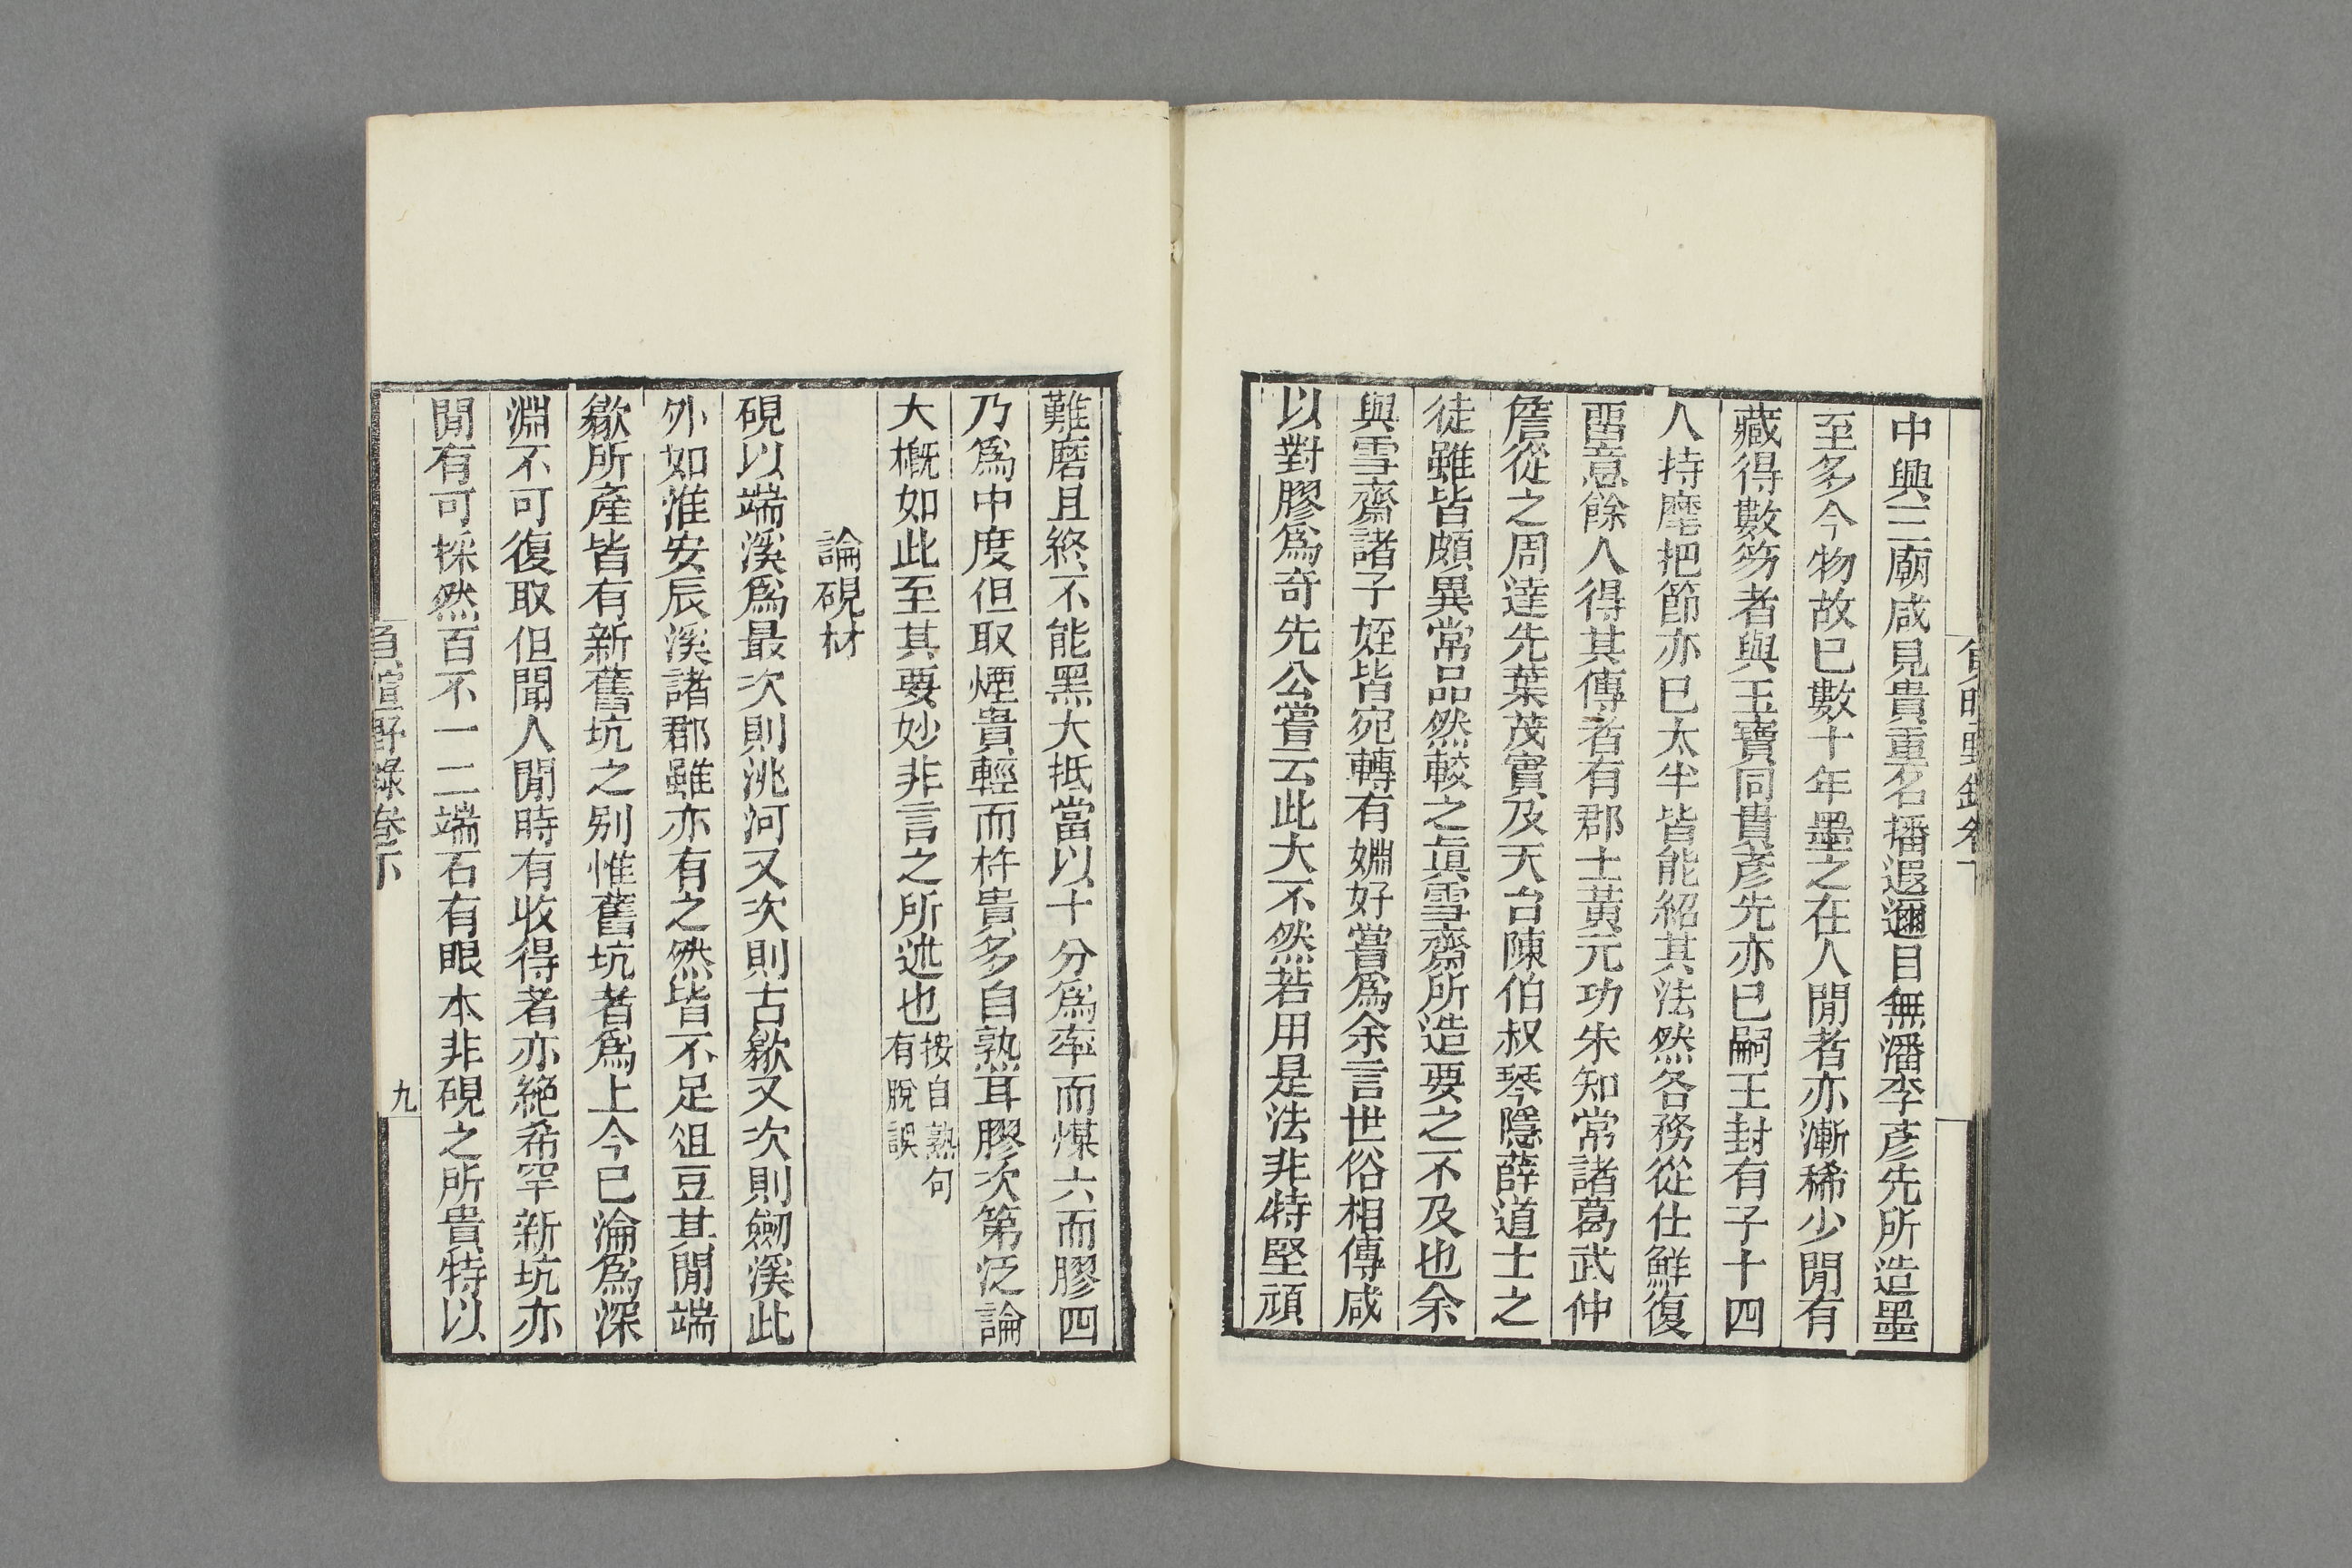 中興三廟咸見貴重名播遐邇目無潘李彥先所造墨
至多今物故已數十年墨之在人閒者亦漸稀少閒有
藏得數笏者與玉寶同貴彥先亦已嗣王封有子十四
人持麾把節亦已太半皆能紹其法然各務從仕鮮復
畱意餘人得其傳者有郡士黃元功朱知常諸葛武仲
詹從之周達先葉茂實及天台陳伯叔琴隱薛道士之
徒雖皆頗異常品然較之眞雪齋所造要之不及也余
與雪齋諸子姪皆宛轉有婣好嘗爲余言世俗相傳咸
以對膠爲奇先公嘗云此大不然若用是法非特堅頑
難磨且終不能黑大抵當以十分爲率而煤六而膠四
乃爲中度但取煙貴輕而杵貴多自熟耳膠次第泛論
大槪如此至其要妙非言之所述也按自熟句有脫誤
論硯材
硯以端溪爲最次則洮河又次則古歙又次則劒溪此
外如淮安辰溪諸郡雖亦有之然皆不足俎豆其閒端
歙所產皆有新舊坑之別惟舊坑者爲上今已淪爲深
淵不可復取但聞人閒時有收得者亦絕希罕新坑亦
閒有可採然百不一二端石有眼本非硯之所貴特以
負暄野錄卷下
九